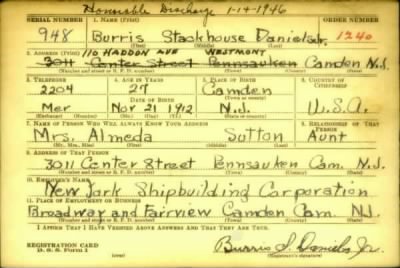 Honorable Discharge 1-14-1946
SERIAL NUMBER 1. NAME (Print) ORDER NUMBER
948 Burris Stackhouse Daniels Jr. 1240
(First) (Middle) (Last)
2. ADDRESS (Print) 110 HADDON AVE WESTMONT
3011 Center Street Pennsauken Camden N.J.
(Number and street or R. F. D. number) (Town) (County) (State)
3. TELEPHONE 4. AGE IN YEARS 5. PLACE OF BIRTH 6. COUNTRY OF CITIZENSHIP
2204 27 Camden
DATE OF BIRTH (Town or county)
Mer Nov 21 1912 N.J. U.S.A.
(Exchange) (Number) (Mo.) (Day) (Yr.) (State or country)
7. NAME OF PERSON WHO WILL ALWAYS KNOW YOUR ADDRESS 8. RELATIONSHIP OF THAT PERSON
Mrs. Almeda Sutton Aunt
(Mr., Mrs., Miss) (First) (Middle) (Last)
9. ADDRESS OF THAT PERSON
3011 Center Street Pennsauken Cam. N.J.
(Number and street or R. F. D. number) (Town) (County) (State)
10. EMPLOYER'S NAME
New York Shipbuilding Corporation
11. PLACE OF EMPLOYMENT OR BUSINESS
Broadway and Fairview Camden Cam. N.J.
(Number and street or R. F. D. number) (Town) (County) (State)
I AFFIRM THAT I HAVE VERIFIED ABOVE ANSWERS AND THAT THEY ARE TRUE.
REGISTRATION CARD
D. S. S. Form 1 Burris S. Daniels Jr.
(Registrant's signature)